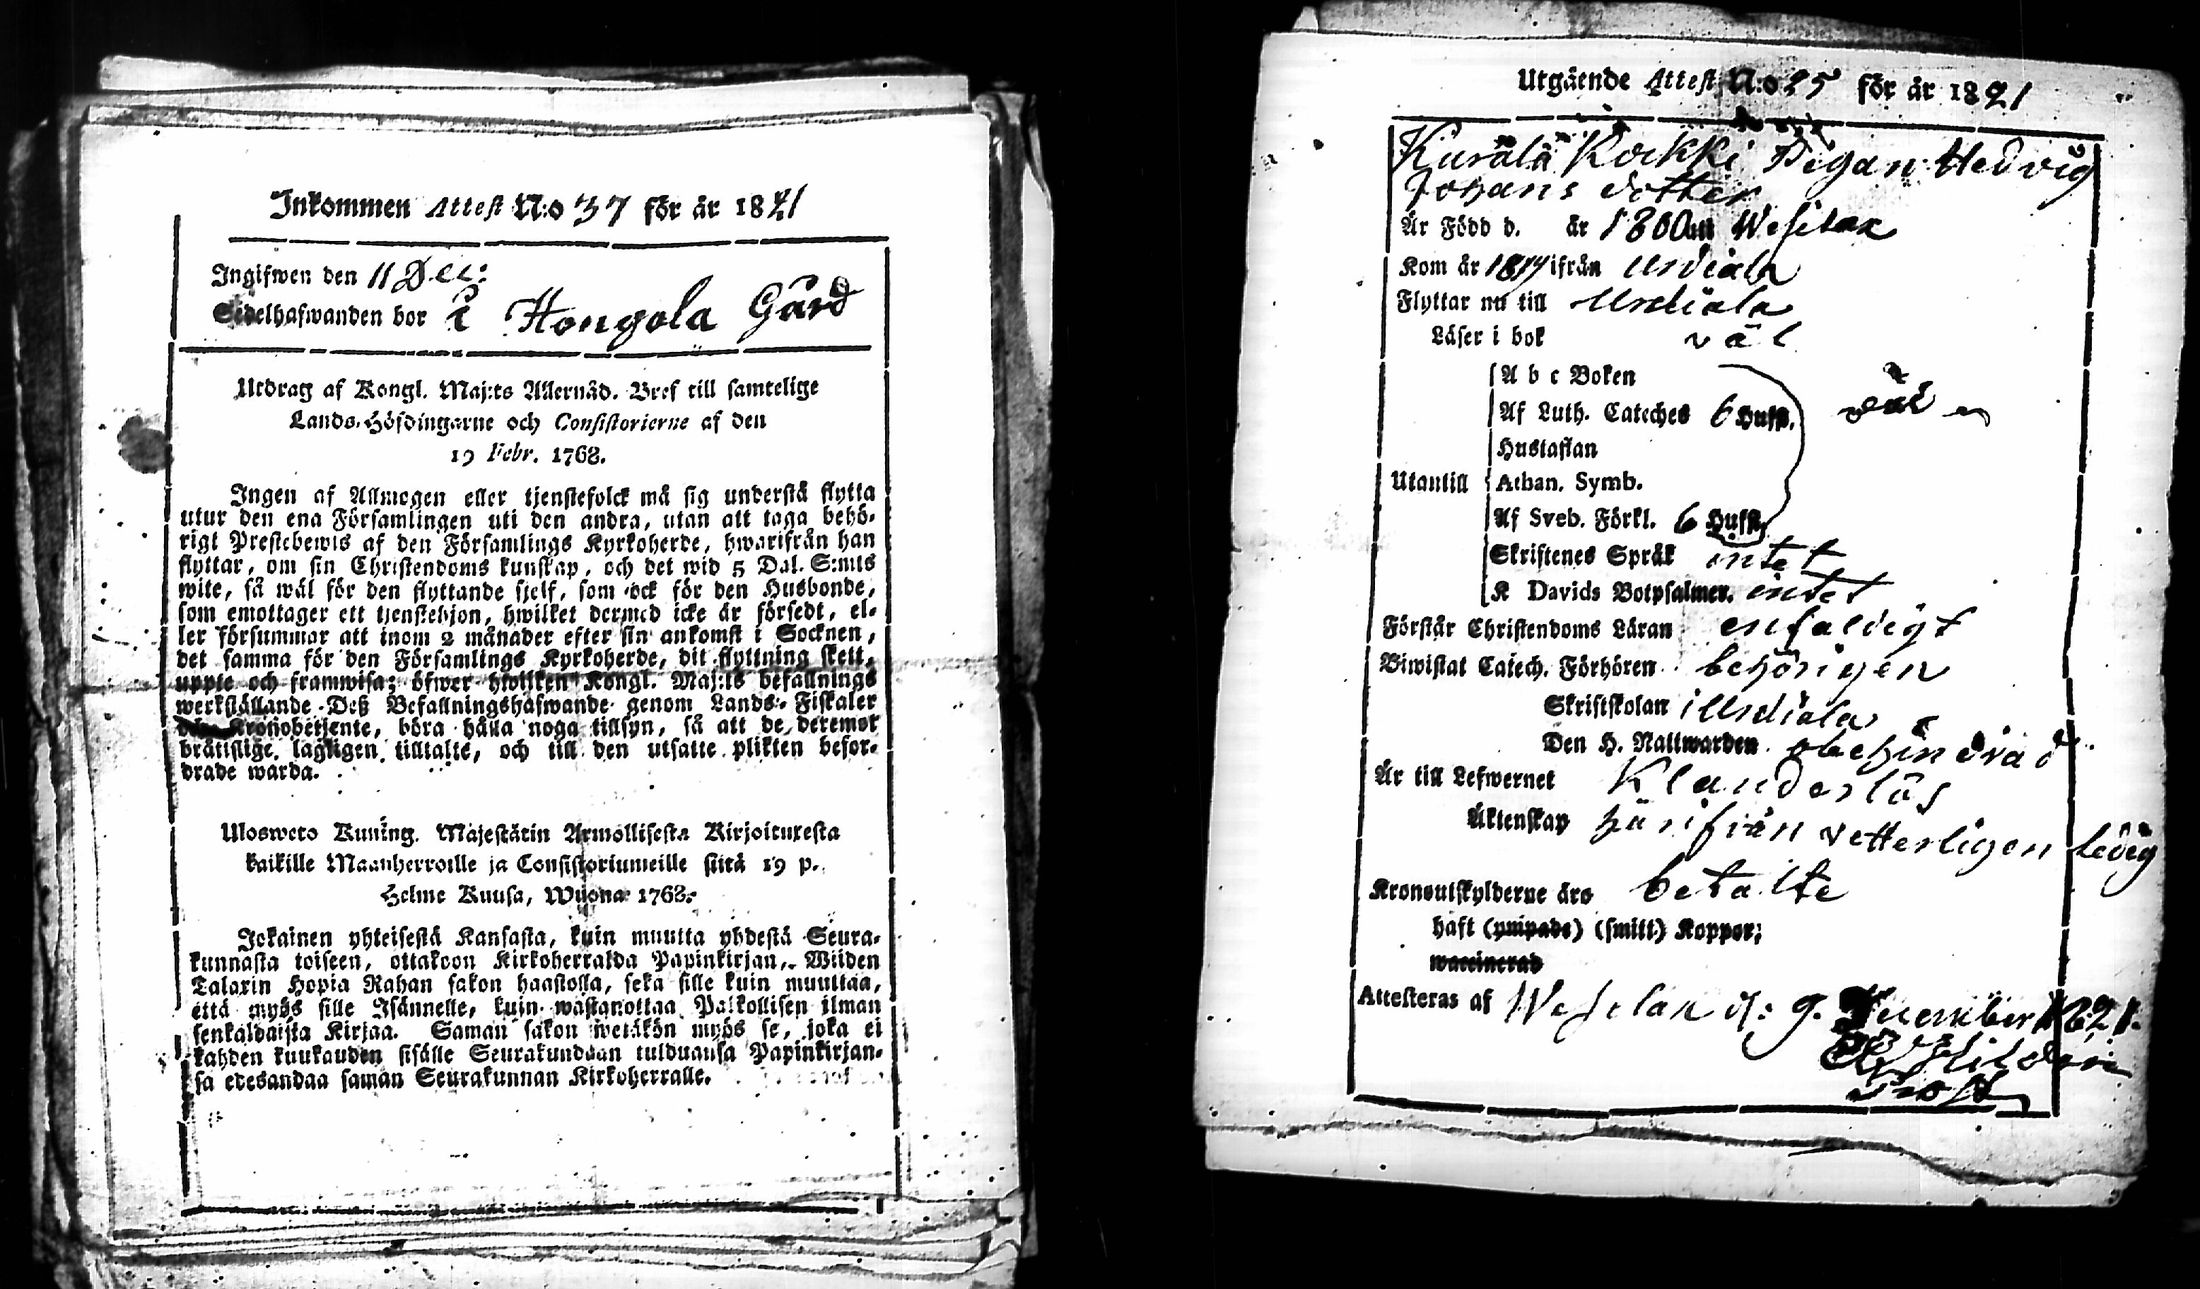 Inkommen Attest N:o 37 för år 1821
Ingifwen den 11 Dec:
Sedelhafwanden bor i Hongola Gård
Utdrag af Kongl. Maj:ts Allernåd. Bref till samtelige
Lands-Höfdingarne och Consistorierne af den
19 Febr. 1768.
Ingen af Allmogen eller tjenstefolck må sig understå flytta
utur den ena Församlingen uti den andra, utan att taga behö-
rigt Prestebewis af den Församlings Kyrkoherde, hwarifrån han
flyttar, om sin Christendoms kunskap, och det wid 5 Dal. S:mts
wite, så wäl för den flyttande sjelf, som ock för den Husbonde,
som emottager ett tjenstehjon, hwilket dermed icke är försedt, el-
ler försummar att inom 2 månader efter sin ankomst i Socknen,
det samma för den Församlings Kyrkoherde, dit flyttning skett,
uppte och framwisa; öfwer hwilken Kongl. Maj:ts befallnings
werkställande Deß Befallningshafwande genom Lands-Fiskaler
och Kronobetjente, böra hålla noga tillsyn, så att de deremot
brätislige lagligen tilltalte, och till den utsatte plikten befor-
drade warda.
Ulosweto Kuning. Majestätin Armollisesta Kirjoituxesta
kaikille Maanherroille ja Consistoriumeille siitä 19 p.
Helme Kuusa, Wuona 1768.
Jokainen yhteisestä Kansasta, kuin muutta yhdestä Seura-
kunnasta toiseen, ottakoon Kirkoherralda Papinkirjan, Wiiden
Talarin Hopia Rahan sakon haastolla, sekä sille kuin muuttaa,
että myös sille Isännelle, kuin wastanottaa Palkollisen ilman
senkaldaista Kirjaa. Saman sakon wetäkön myös se, joka ei
kahden kuukauden sisälle Seurakundaan tulduansa Papinkirjan-
sa edesandaa saman Seurakunnan Kirkoherralle.
Utgående Attest N:o 25 för år 1821
Kurälä Kockki Pigan Hedvig
Johans dotter
Är Född d. år 1800 uti Wesilax
Kom år ifrån Urdiala
Flyttar nu till Urdiala
Läser i bok väl
A b c Boken
Af Luth. Cateches 6 Hufst. väl
Hustaflan
Utantill Athan. Symb.
Af Sveb. Förkl. 6 Hufst.
Skriftenes Språk intet
K Davids Botpsalmer. intet
Förstår Christendoms Läran enfaldigt
Biwistat Catech. Förhören behörigen
Skriftskolan i Urdiala
Den H. Nattwarden obehindrad
Är till Lefwernet Klanderlös
Äktenskap härifrån vetterligen ledig
Kronoutskylderne äro betalte
haft (ympade) (smitt) Koppor;
waccinerad
Attesteras af Wesilax d: 9. December 1821.
Prost